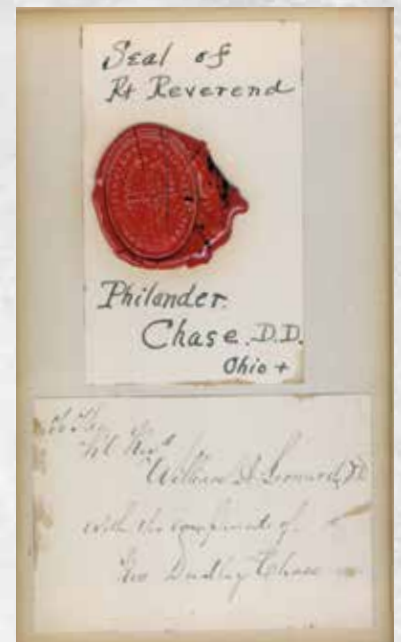 Seal of
Rt Reverend
Philander
Chase. D.D.
Ohio +
To The
Rt Revd
William A Leonard, DD
with the compliments of
Rev Dudley Chase